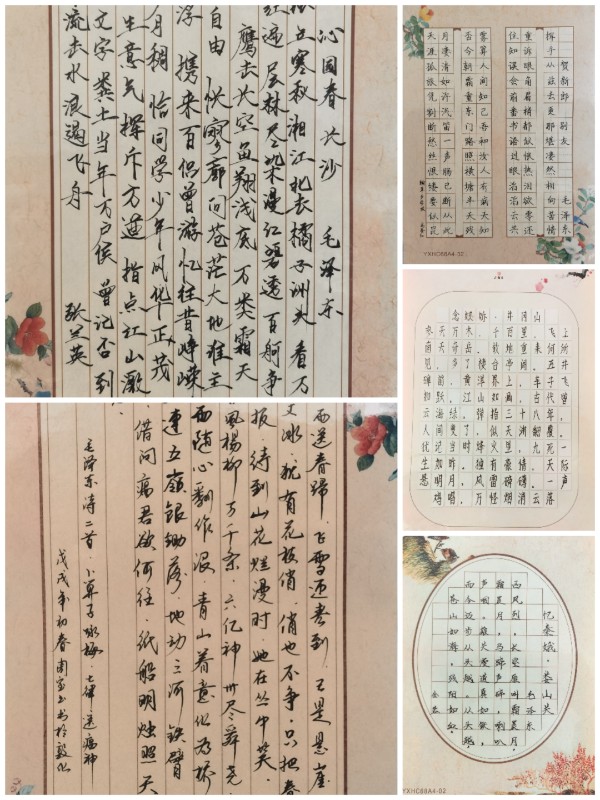 沁园春 长沙 毛泽东
立寒秋湘江北去橘子洲头 看万
红遍 层林尽染漫江碧透百舸争
鹰击长空鱼翔浅底 万类霜天
自由 怅寥廓问苍茫大地谁主
浮 携来百侣曾游忆往昔峥嵘
月稠 恰同学少年风华正茂
生意气挥斥方遒 指点江山激
文字粪土当年万户侯曾记否到
流击水 浪遏飞舟
张兰英
贺新郎 别友 毛泽东
挥手从兹去更那堪凄然相向苦情
重诉眼角眉梢都似恨热泪欲零还
住知误会前番书语过眼滔滔云共
雾算人间知己吾和汝人有病天知
否今朝霜重东门路照横塘半天残
月凄清如许汽笛一声肠已断从此
天涯孤旅凭割断愁丝恨缕要似昆
YXHC88A4-02
念奴娇·井冈山
参天万木,千百里,飞上
南天奇岳。故地重来何所
见,多了楼台亭阁。五井
碑前,黄洋界上,车子飞
如跃。江山如画,古代曾
云海绿。弹指三十八年,
人间变了,似天渊翻覆。
犹记当时烽火里,九死一
生如昨。独有豪情,天际
悬明月,风雷磅礴。一声
鸡唱,万怪烟消云落
雨送春归 飞雪迎春到 已是悬崖
丈冰 犹有花枝俏 俏也不争 只把春
报 待到山花烂漫时 她在丛中笑
风杨柳万千条 六亿神州尽舜尧
雨随心翻作浪 青山着意化为桥
连五岭银锄落 地动三河铁臂
借问瘟君欲何往 纸船明烛照天
毛泽东诗二首 卜算子咏梅 七律 送瘟神
戊戌年初春
忆秦娥·娄山关
毛泽东
西风烈,长空雁叫霜晨月。
霜晨月,马蹄声碎,喇叭
声咽。雄关漫道真如铁,
而今迈步从头越。从头越,
苍山如海,残阳如血。
YXHC88A4-02